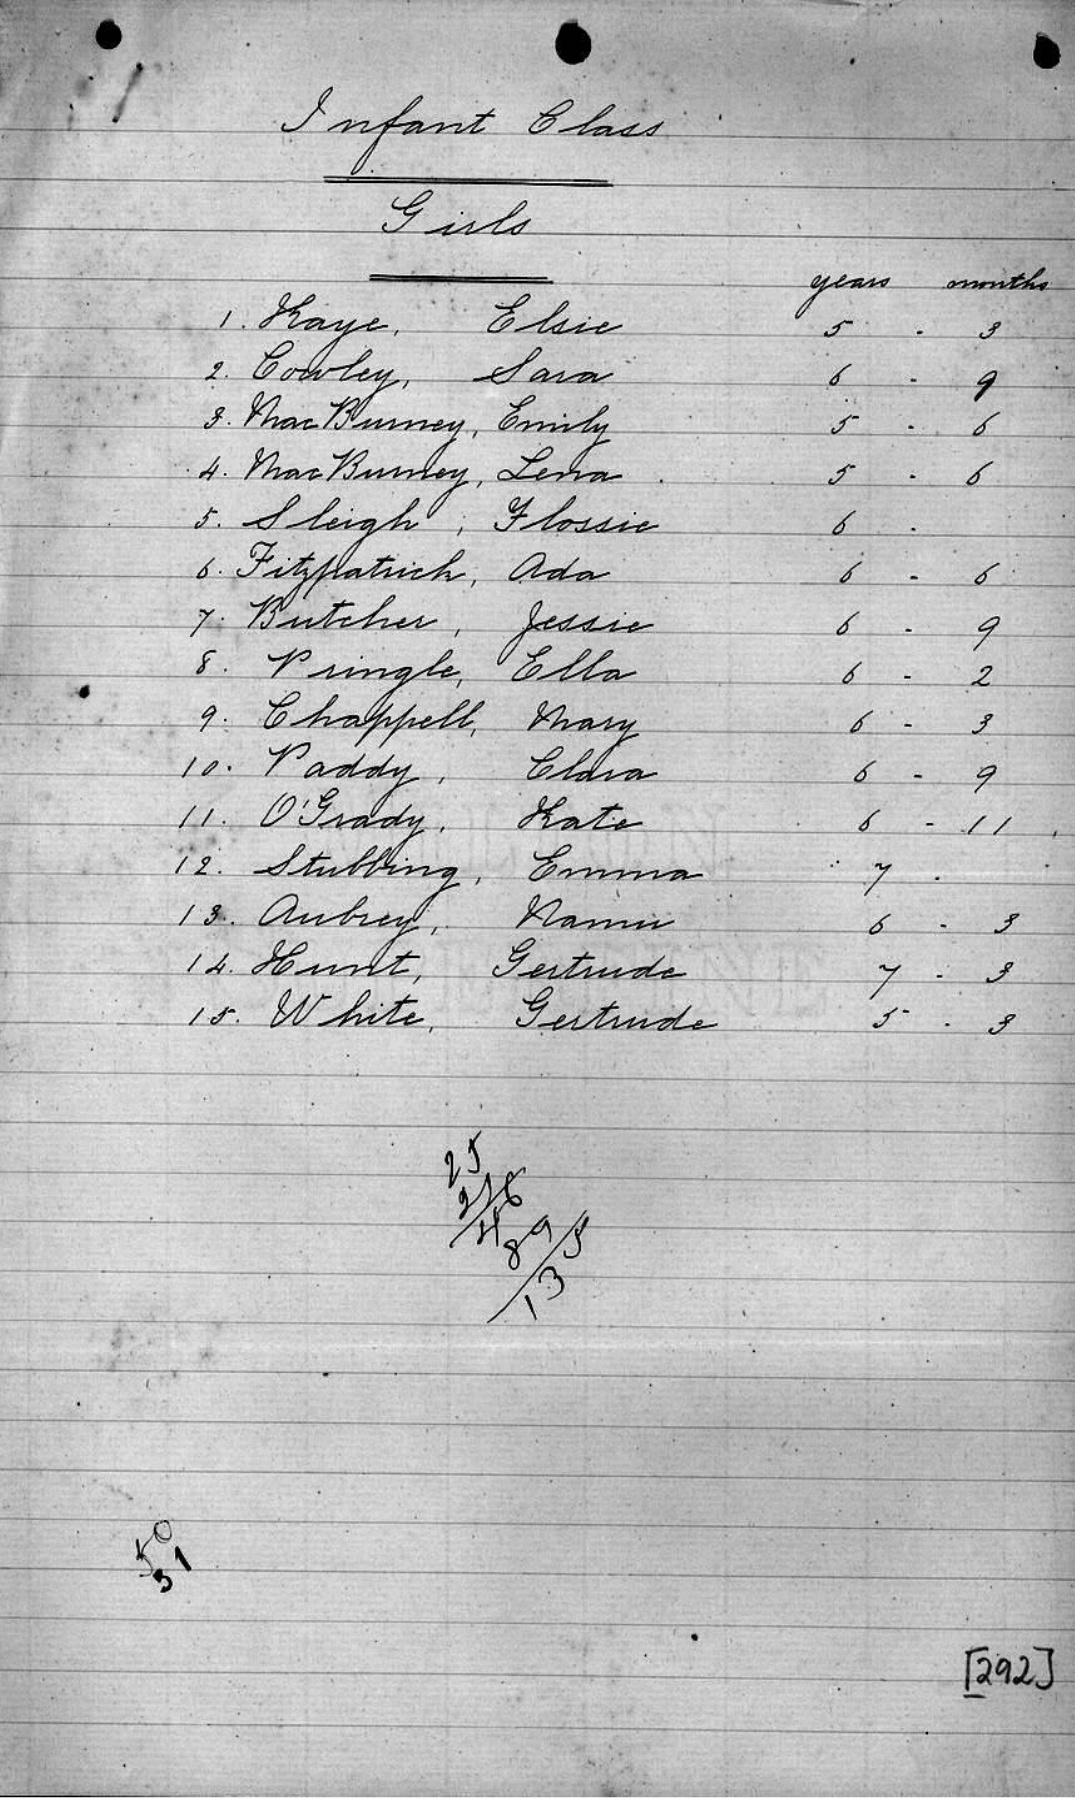 Infant Class
Girls
years - months
1. Kaye, Elsie 5 - 3
2. Cowley, Sara 6 - 9
3. MacBurney, Emily 5 - 6
4. MacBurney, Lena 5 - 6
5. Sleigh, Flossie 6 -
6. Fitzpatrick, Ada 6 - 6
7. Butcher, Jessie 6 - 9
8. Pringle, Ella 6 - 2
9. Chappell, Mary 6 - 3
10. Paddy, Clara 6 - 9
11. O'Grady, Kate 6 - 11
12. Stubbing, Emma 7 -
13. Aubrey, 6 - 3
14. Hunt, Gertrude 7 - 3
15. White, Gertrude 5 - 3
25
89
135
50
31
[292]